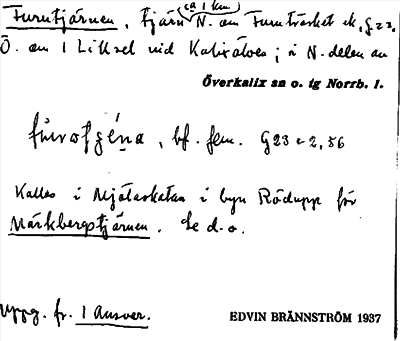 Furutjärnen, tjärn ca 1 km N. om Furuträsket ek. g 23,
Ö. om 1 Liksel vid Kalixälven; i N-delen av
Överkalix sn o. tg Norrb. l.
bf. fem. G23 c 2, 56
Kallas i Mjölaskatan i byn Rödupp för
Märkbergstjärnen. Se d.o.
Uppg. fr. 1 Ansver.
EDVIN BRÄNNSTRÖM 1937